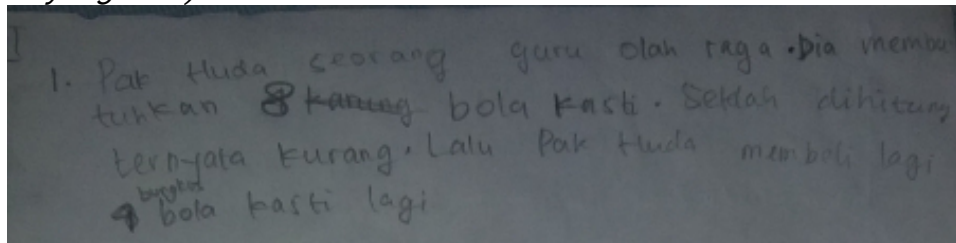 1. Pak Huda seorang guru olah raga. Dia membu
tuhkan 8 kantung bola kasti. Setlah dihitung
ternyata kurang. Lalu Pak Huda membeli lagi
bungkus
9 bola kasti lagi